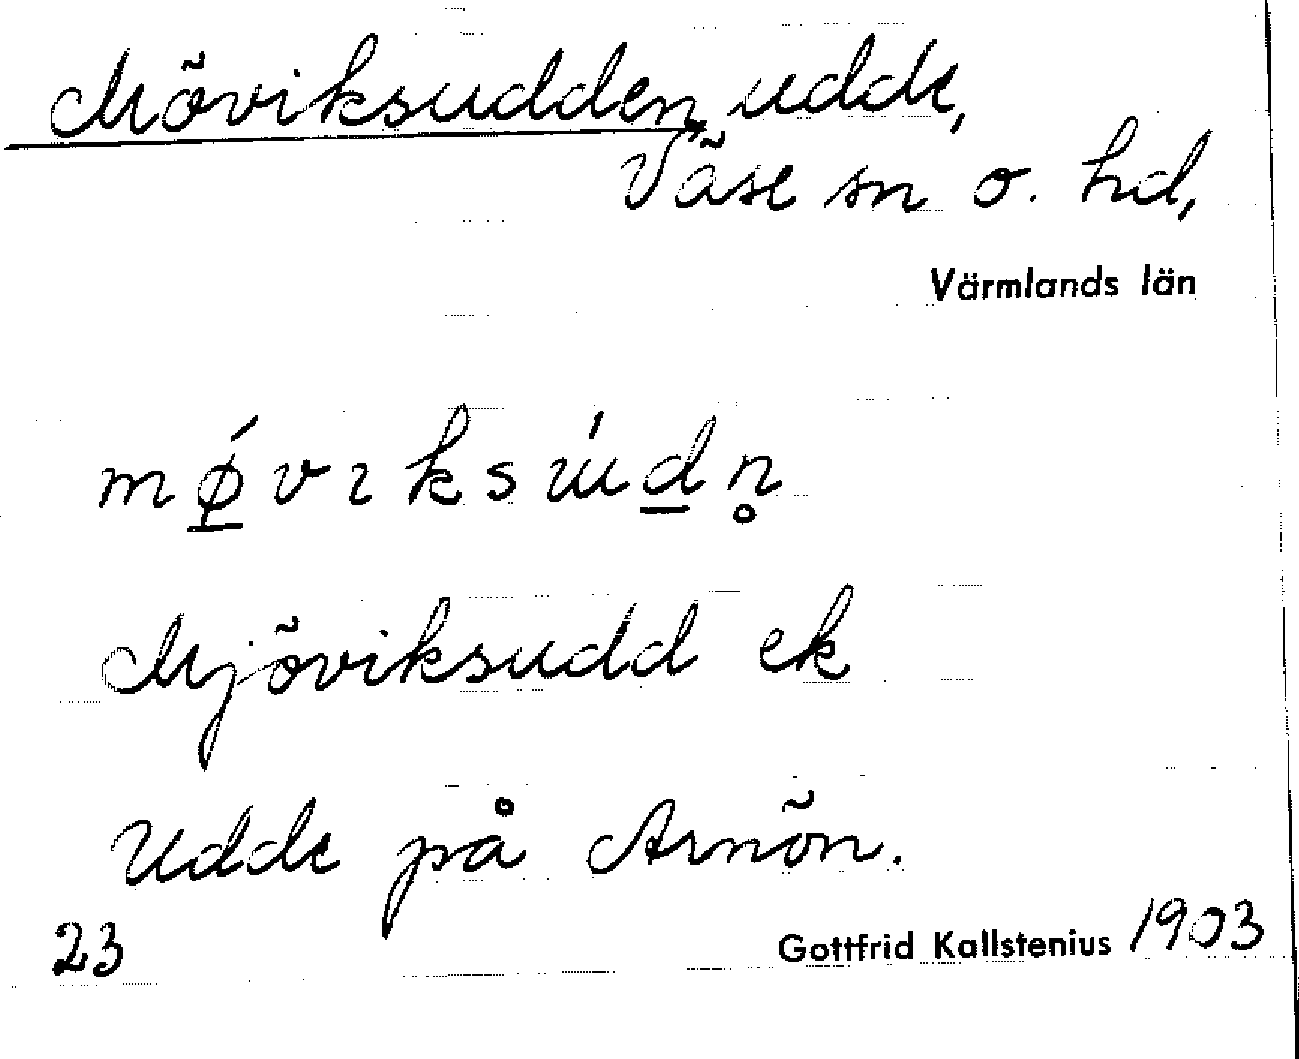 Möviksudden udde,
Väse sn o. hd,
Värmlands län
mǿ̲vıksu̇́d̲n̥
Mjöviksudd ek
Udde på Arnön.
23 Gottfrid Kallstenius 1903